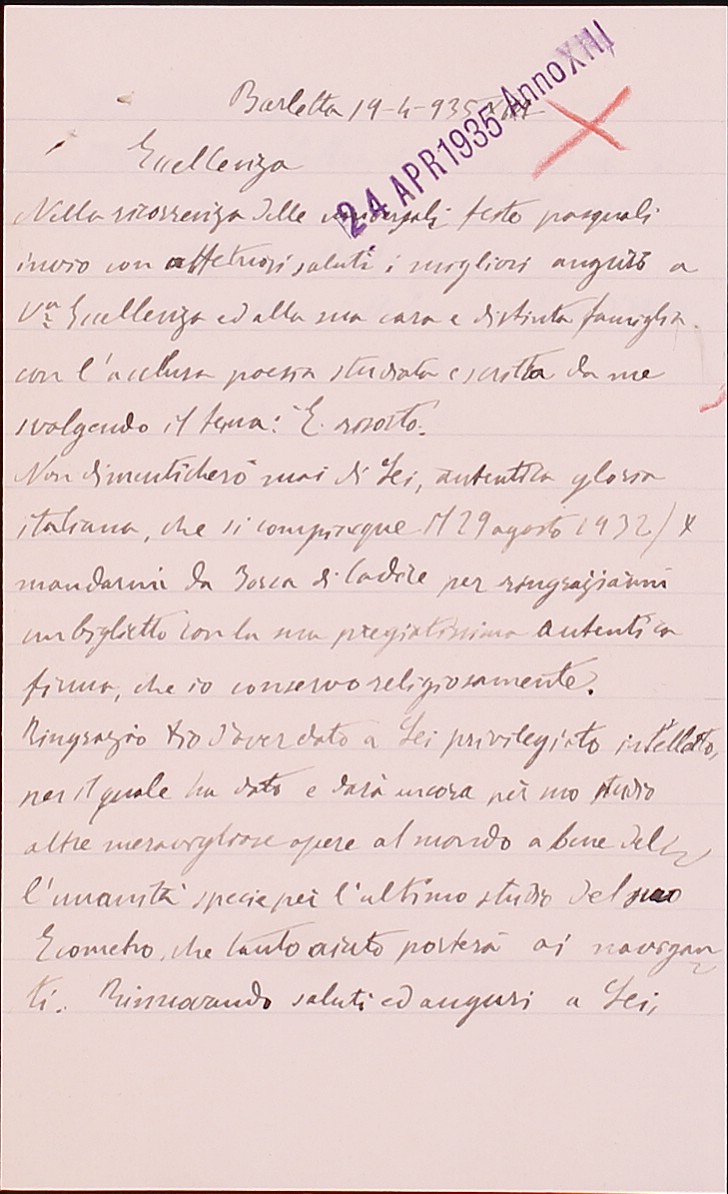 Barletta 19-4-935
24 APR 1935 Anno XIII
Eccellenza
Nella ricorrenza delle universali feste pasquali
invio con affettuosi saluti i migliori augurî a
Vª Eccellenza ed alla sua cara e distinta famiglia
con l'acclusa poesia studiata e scritta da me
svolgendo il tema: È risorto.
Non dimenticherò mai di Lei, autentica gloria
italiana, che si compiacque il 29 agosto 1932/X
mandarmi da Bocca di Cadore per ringraziarmi
un biglietto con la sua pregiatissima autentica
firma, che io conservo religiosamente.
Ringrazio Dio d'aver dato a Lei privilegiato intelletto,
per il quale ha dato e darà ancora per suo studio
altre meravigliose opere al mondo a bene del
l'umanità specie per l'ultimo studio del suo
Ecometro, che tanto aiuto porterà ai navigan
ti. Rinnovando saluti ed auguri a Lei,